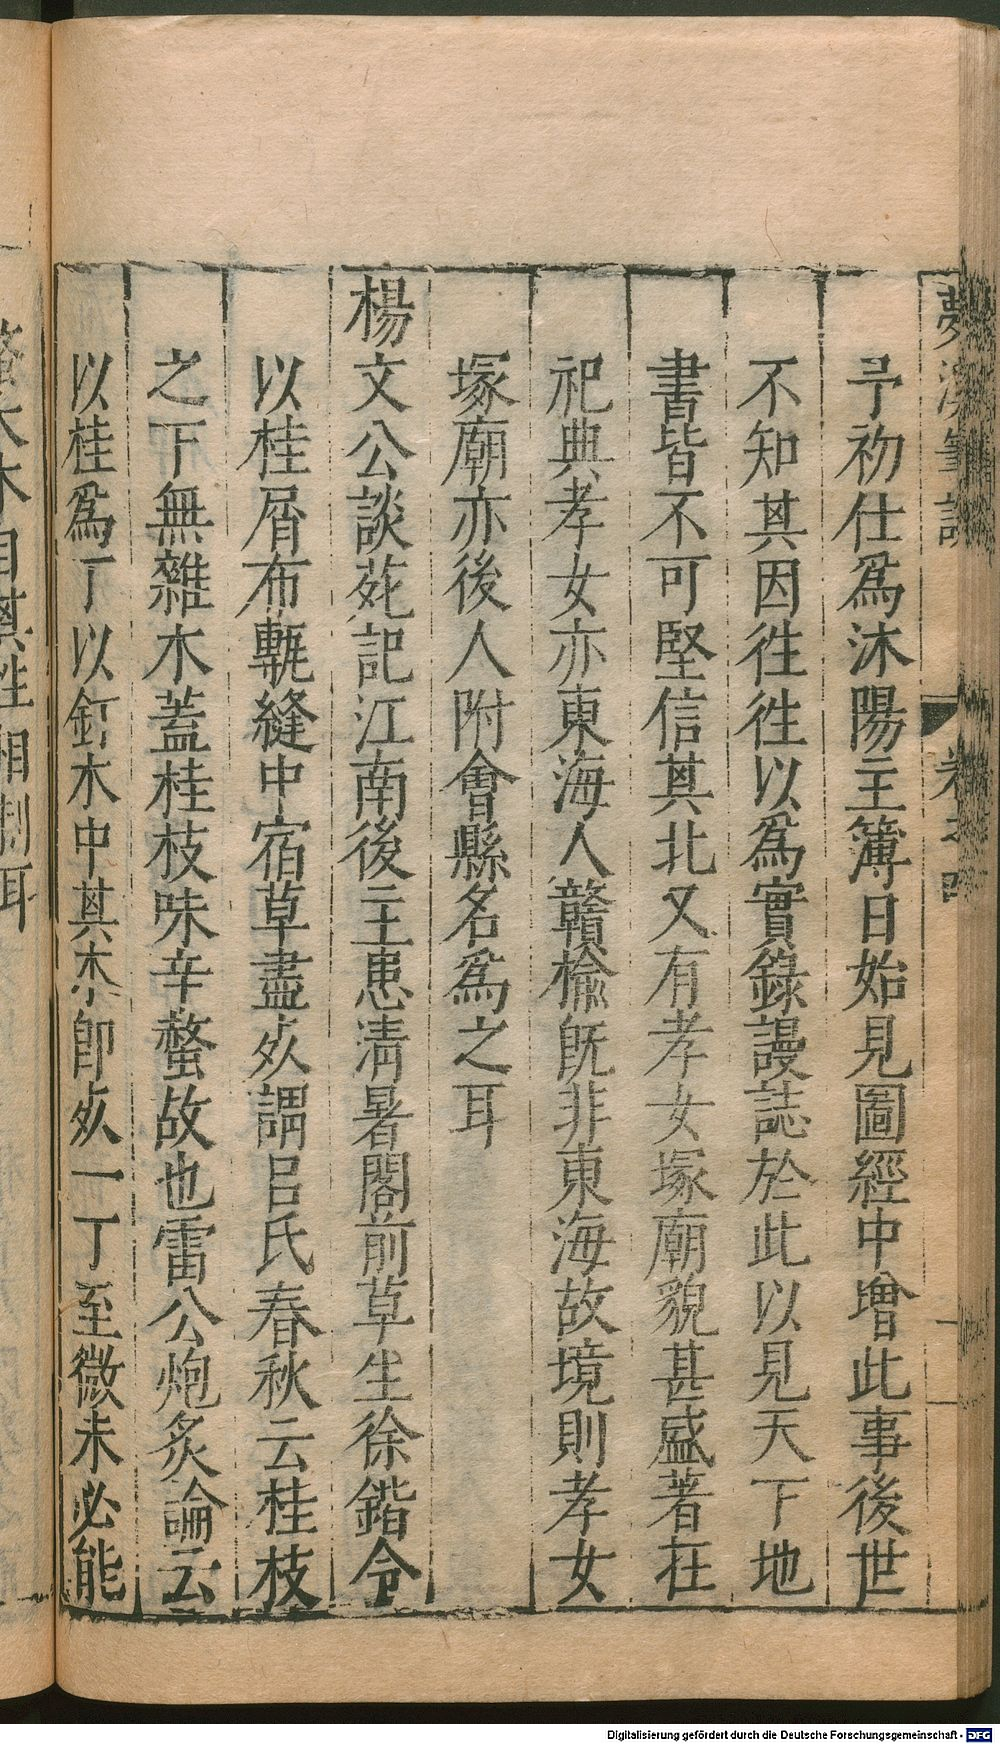 夢溪筆談 卷之四 一
予初仕爲沭陽主簿日始見圖經中增此事後世
不知其因徃徃以爲實錄謾誌於此以見天下地
書皆不可堅信其北又有孝女塚廟貌甚盛著在
祀典孝女亦東海人贛榆旣非東海故境則孝女
塚廟亦後人附會縣名爲之耳
楊文公談苑記江南後主患淸暑閣前草生徐鍇令
以桂屑布甎縫中宿草盡死謂呂氏春秋云桂枝
之下無雜木蓋桂枝味辛螫故也雷公炮炙論云
以桂爲丁以釘木中其木卽死一丁至微未必能
螫大木自其性相制耳
Digitalisierung gefördert durch die Deutsche Forschungsgemeinschaft - DFG